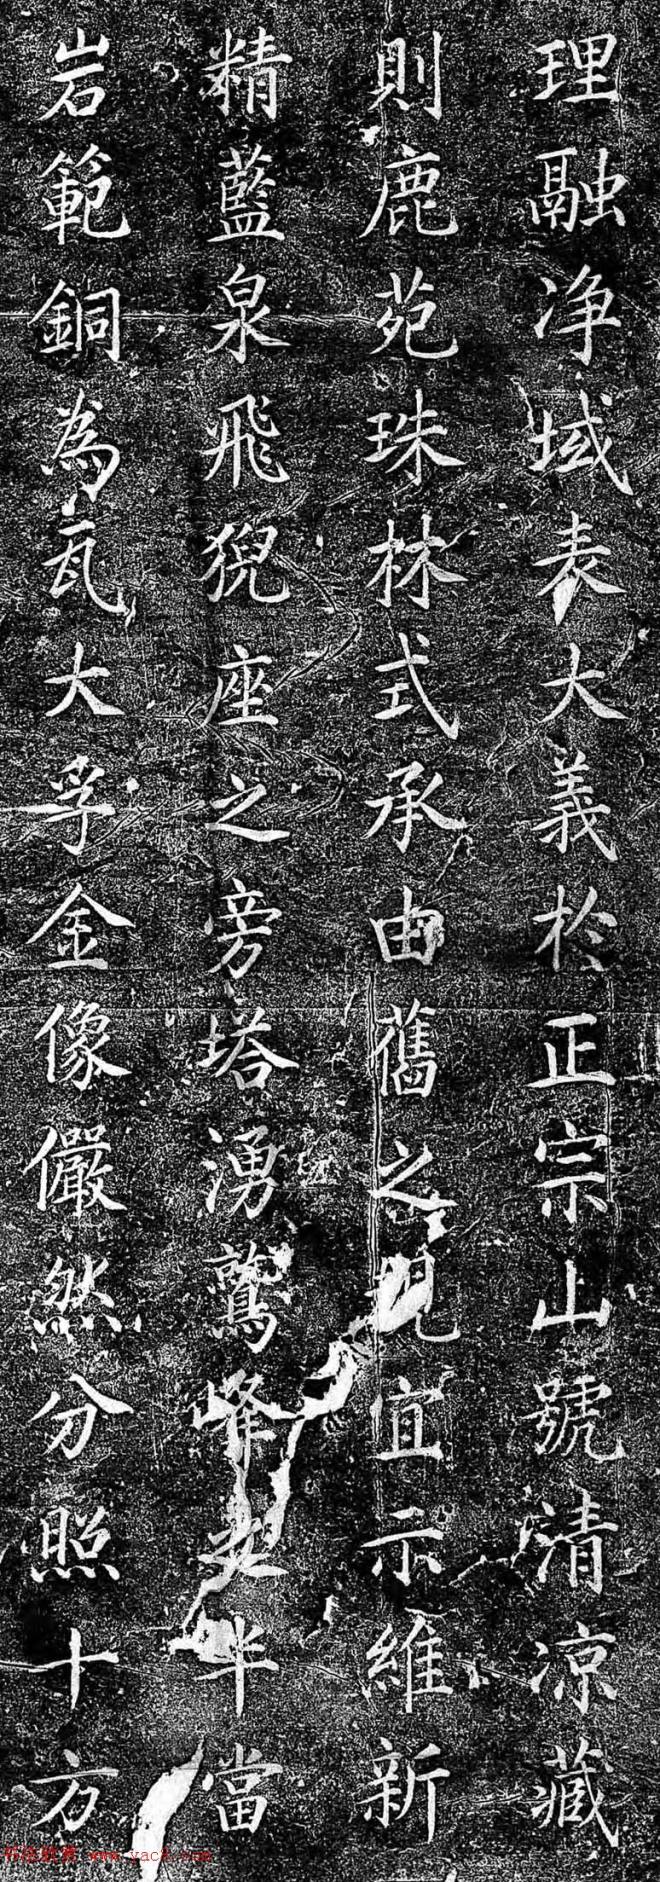 理融净域表大義於正宗山號清涼藏
則鹿苑珠林式承由舊之規宜示維新
精藍泉飛猊座之旁塔湧鷲峰之半當
岩範銅為瓦大孚金像儼然分照十方
书法欣赏 www.yac8.com